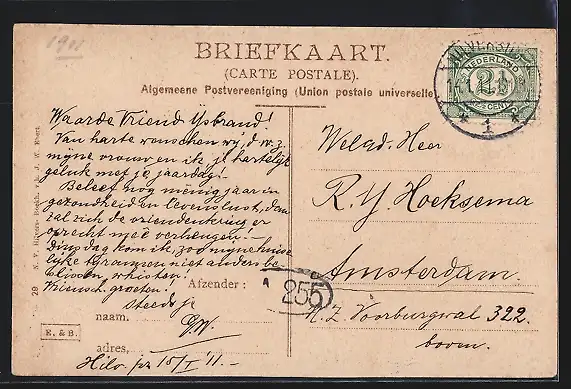 1911
BRIEFKAART.
(CARTE POSTALE).
Algemeene Postvereeniging (Union postale universelle)
HILVERSUM
NEDERLAND
2½
CENT
1
Waarde Vriend IJsbrand!
Van harte wenschen wij, d.w.z.
mijne vrouw en ik, je hartelijk
geluk met je jaardag!
Beleef nog menig jaar in
gezondheid en levenslust, dan
zal zich de vriendenkring er
oprecht mee verheugen!
Dinsdag kom ik, zoo mijne huise-
lijke tyrannen niet anders be-
slissen, whisten!
Vriendsch. groeten!
steeds je
G.W.
Hilv. 15/I '11.
Afzender :
naam.
adres,
255
Weled. Heer
R. Y. Hoeksema
Amsterdam.
N. Z. Voorburgwal 322.
boven.
E. & B.
29 N. V. Hilvers. Boekh. v/h J. W. Ebert.